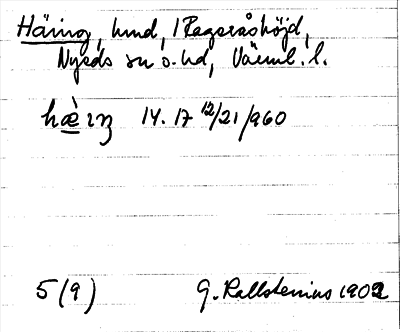 Häring, hund, i Rageråshöjd,
Nyeds sn o. hd, Värml. l.
14. 17 12/21/960
5 (9) G. Kallstenius 1902